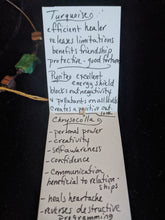 Turquoise:
efficient healer
relaxes limitations
benefits friendship
protective - good fortune
Pyrites excellent
energy shield
blocks out negativity
& pollutants on all levels
Creates a positive out
look
Chrysocolla
- personal power
- creativity
- self awareness
- confidence
- Communication
beneficial to relation-
ships
- heals heartache
- reverses destructive
programming